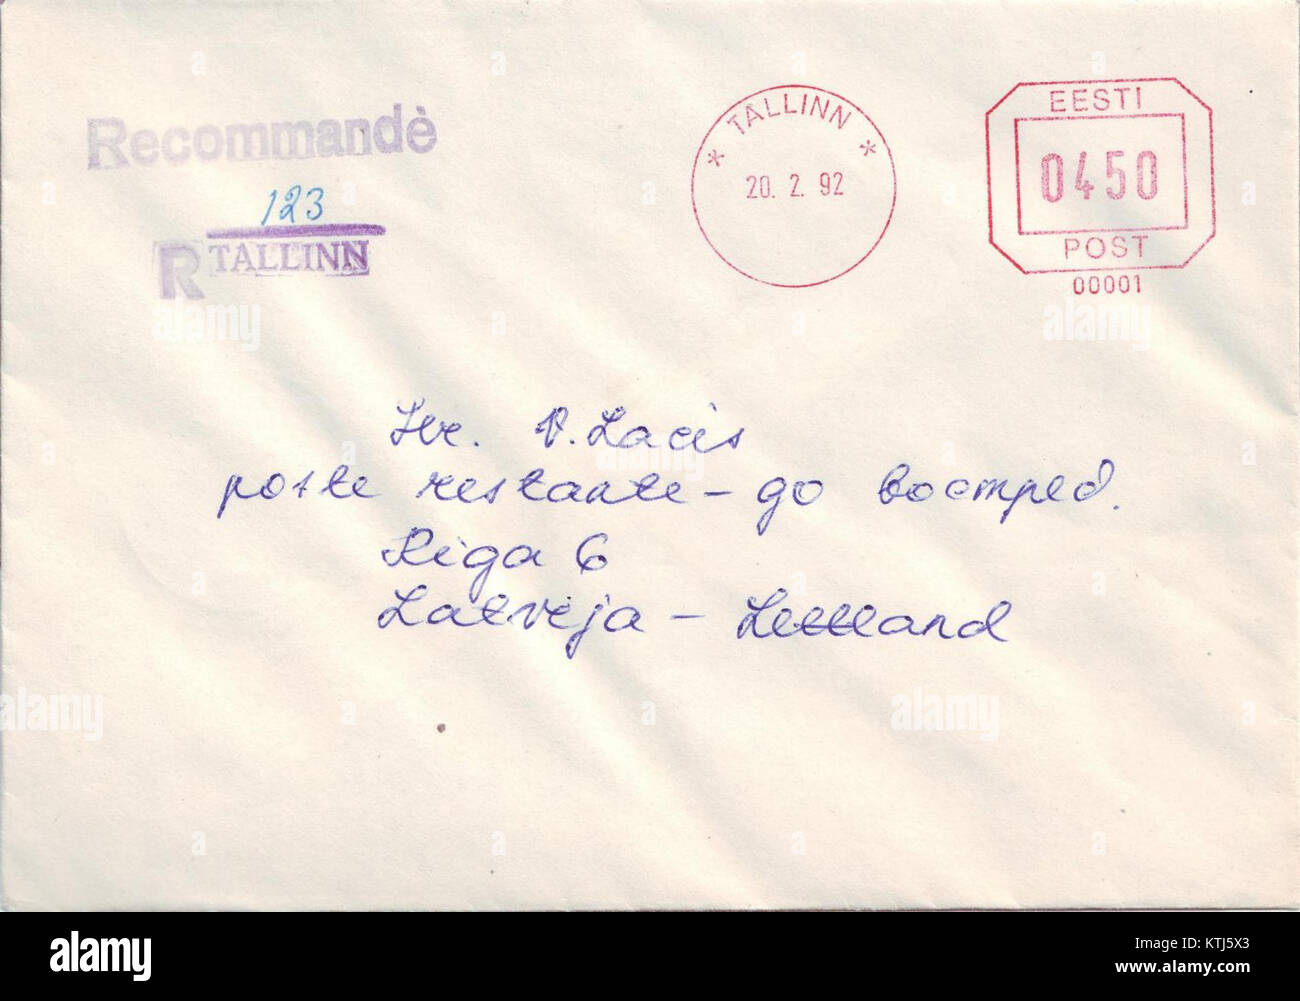 Recommandè
123
R TALLINN
* TALLINN *
20. 2. 92
EESTI
0450
POST
00001
Hr. V. Lacis
poste restante - go
Riga 6
Latvija - Lettland
alamy
KTJ5X3
www.alamy.com